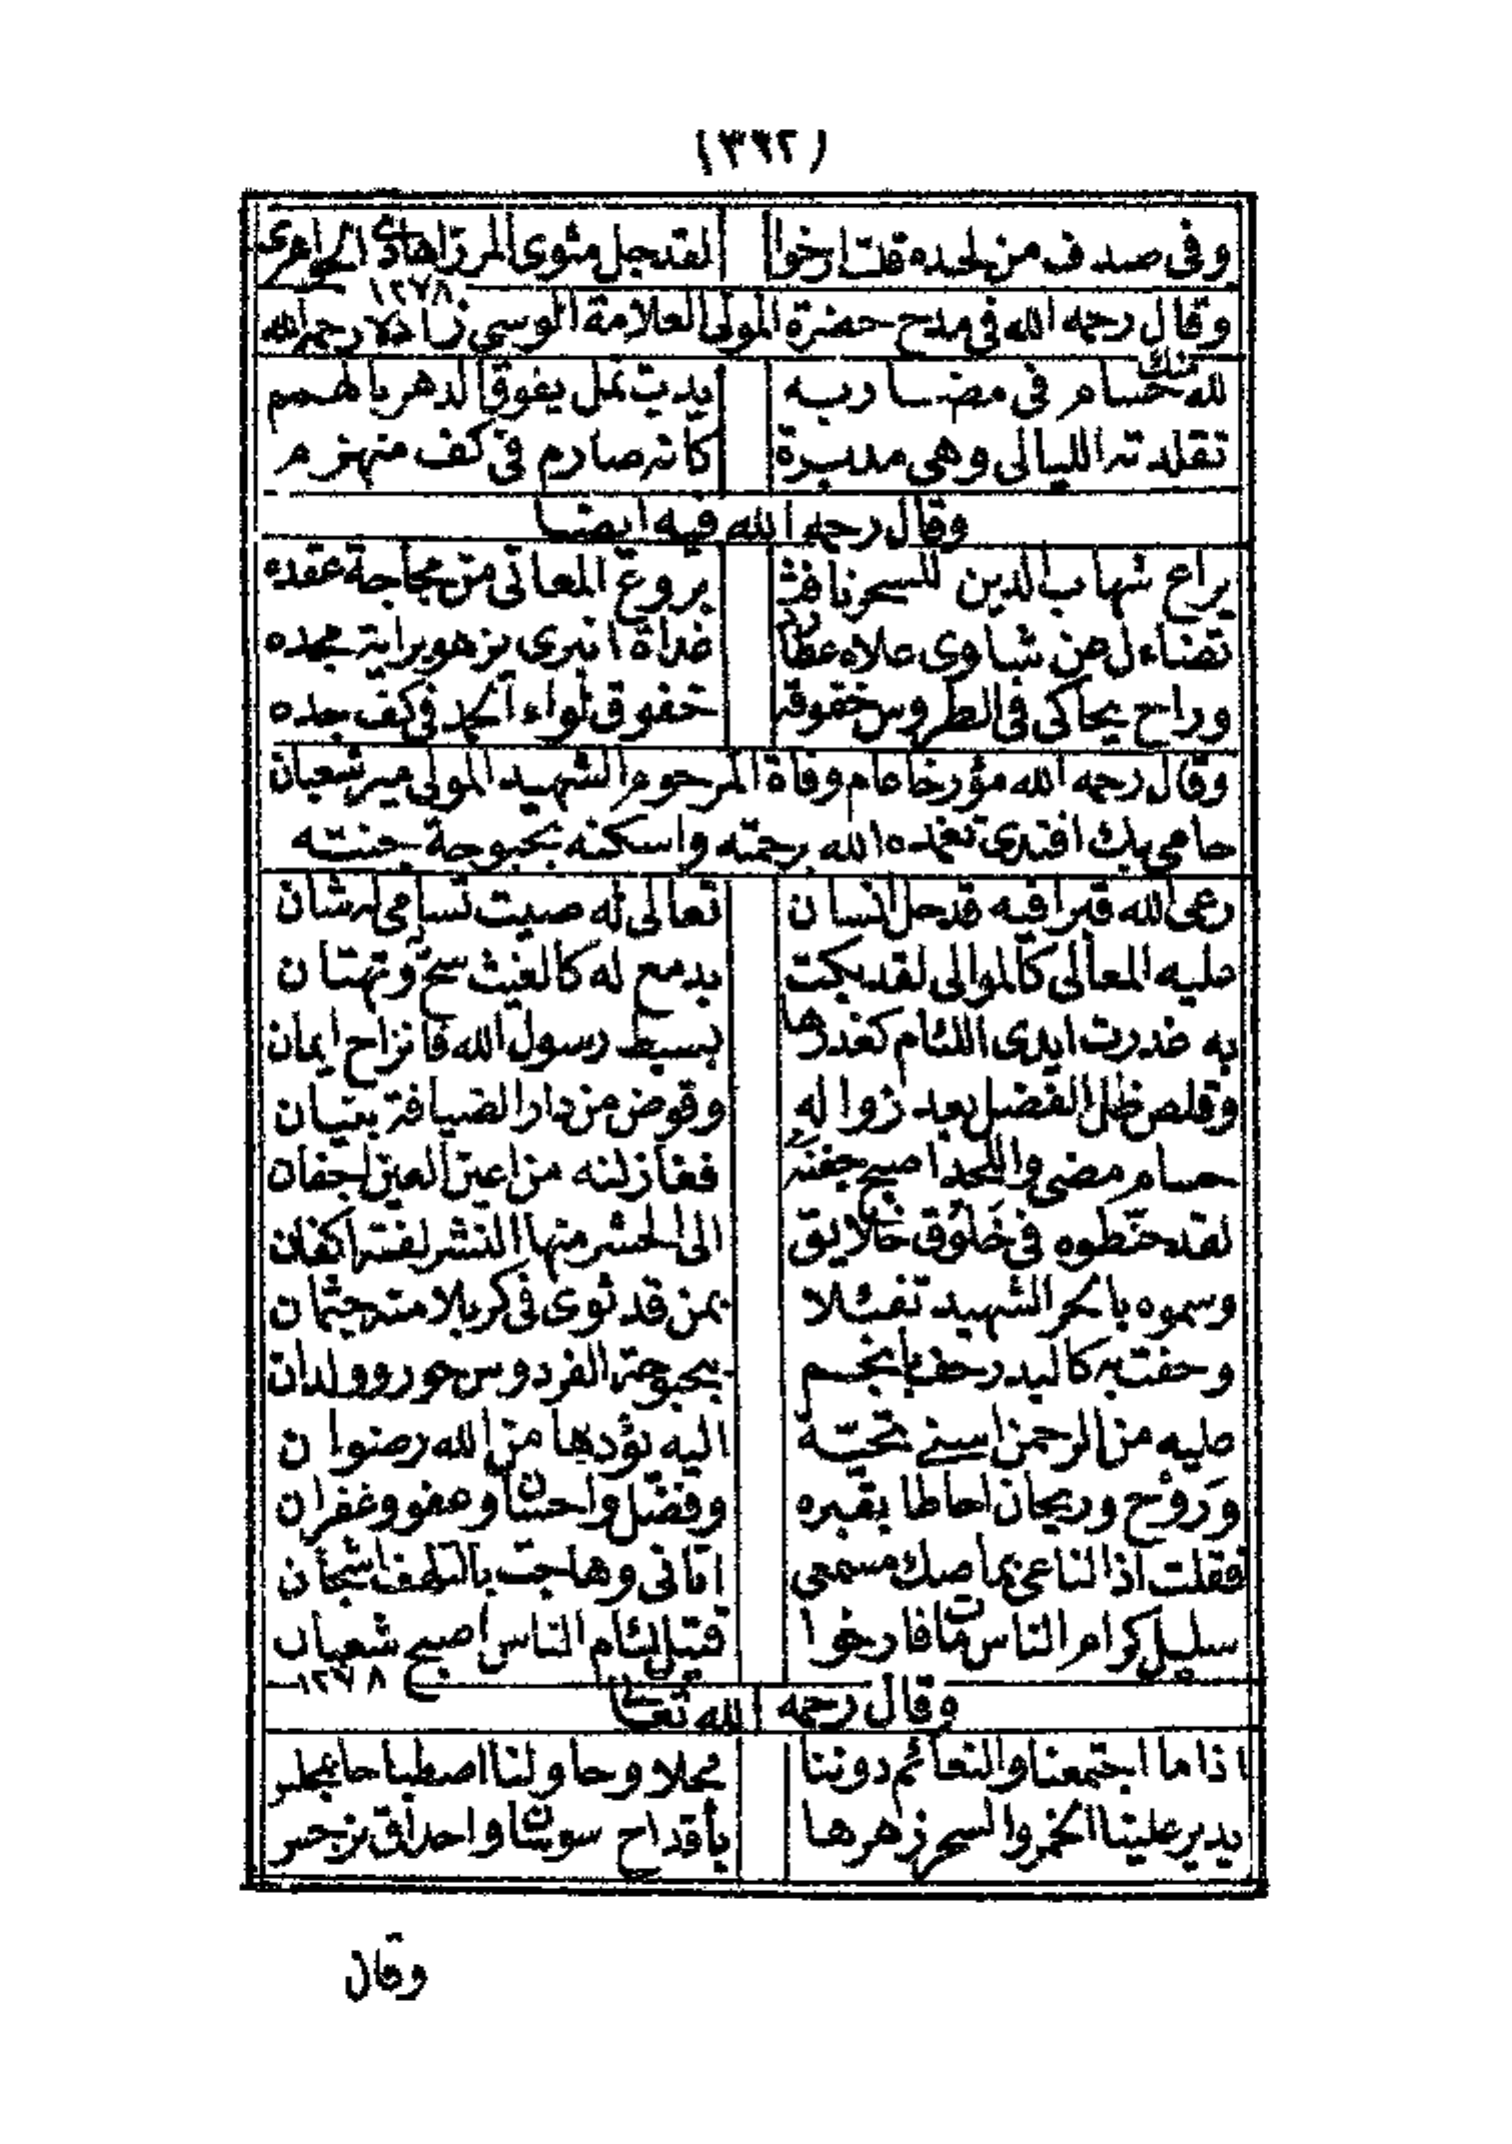 (٣٩٢)
وفى صدف من لحده قلت ارخوا لقد جل مثوى المرزا هادى الجواهرى
١٢٧٨
وقال رحمه الله فى مدح حضرة المولى العلامة الوسي زاده رحمه الله
لله منك حسام فى مضاربه يديت نمل يفوق الدهر بالهمم
تقلدته الليالى وهى مدبرة كانه صارم فى كف منهزم
وقال رحمه الله فيه ايضا
يراع شهاب الدين للسحر نافث بروع المعانى من مجاجة عقده
تضاءل من شاوى علاه عطارد غداة انبرى يزهو براية مجده
وراح يحاكى فى الطروس خفوقه خفوق لواء الحمد فى كف جده
وقال رحمه الله مؤرخا عام وفاة المرحوم الشهيد المولى مير شعبان
حامى بيك افندى تغمده الله برحمته واسكنه بحبوحة جنته
رعى الله قبرا فيه قد حل انسان تعالى له صيت تسامى له شان
عليه المعالى كالموالى لقد بكت بدمع له كالغيث سح وتهتان
به غدرت ايدى اللئام كغدرها بسبط رسول الله فانزاح ايمان
وقلص ظل الفضل بعد زواله وقوض من دار الضيافة بنيان
حسام مضى واللحد اصبح جفنه فغازلنه من اعين العين اجفان
لقد حنّطوه فى خَلُوق خلايق الى الحشر منها النشر لفته اكفان
وسموه بالحر الشهيد تفئلا بمن قد ثوى فى كربلا منه جثمان
وحفت به كالبدر حف بانجم ببحبوحة الفردوس حور وولدان
عليه من الرحمن اسنى تحيّة اليه يؤدها من الله رضوان
وَرَوْح وريحان احاطا بقبره وفضل واحسان وعفو وغفران
فقلت اذ الناعى بما صك مسمعى اتانى وهاجت بالتلهف اشجان
سليل كرام الناس مات فارخوا قتيل لئام الناس اصبح شعبان
١٢٧٨
وقال رحمه الله تعا
اذا ما اجتمعنا والنعائم دوننا بمجلا وحاولنا اصطباحا بمجلس
يدير علينا الخمر والسحر زهرها بأقداح سوسان واحداق نرجس
وقال